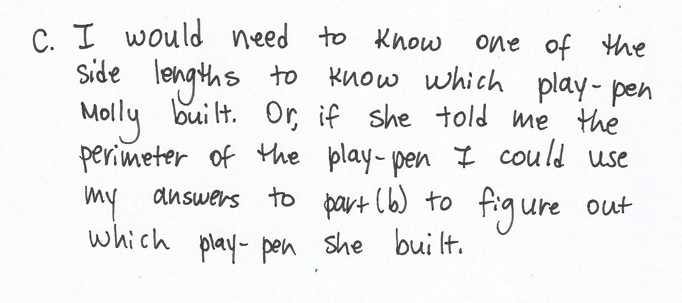 C. I would need to know one of the
side lengths to know which play-pen
Molly built. Or, if she told me the
perimeter of the play-pen I could use
my answers to part (b) to figure out
which play-pen she built.